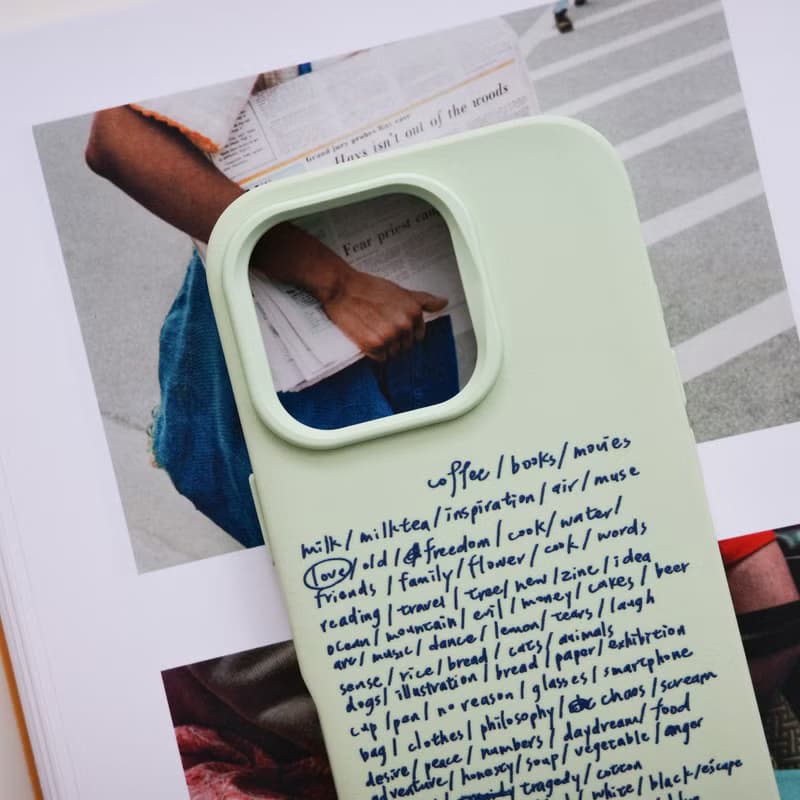 Grand jury probes Ray case
Hays isn't out of the woods
Fear priest
coffee / books / movies
milk / milktea / inspiration / air / muse
love / old / freedom / cook / water /
friends / family / flower / cook / words
reading / travel / tree / new / zine / idea
ocean / mountain / evil / money / cakes / beer
art / music / dance / lemon / tears / laugh
sense / rice / bread / cats / animals
dogs / illustration / bread / paper / exhibition
cup / pan / no reason / glasses / smartphone
bag / clothes / philosophy / chaos / scream
desire / peace / numbers / daydream / food
adventure / honesty / soup / vegetable / anger
tragedy / cotton
white / black / escape